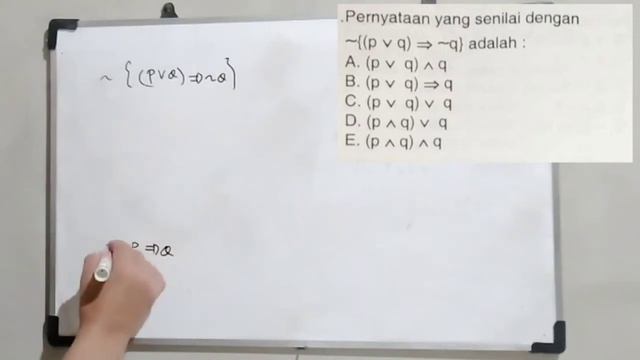 .Pernyataan yang senilai dengan
~{(p ∨ q) ⇒ ~q} adalah :
A. (p ∨ q) ∧ q
B. (p ∨ q) ⇒ q
C. (p ∨ q) ∨ q
D. (p ∧ q) ∨ q
E. (p ∧ q) ∧ q
~ {(P∨Q)⇒~Q}
P ⇒ Q